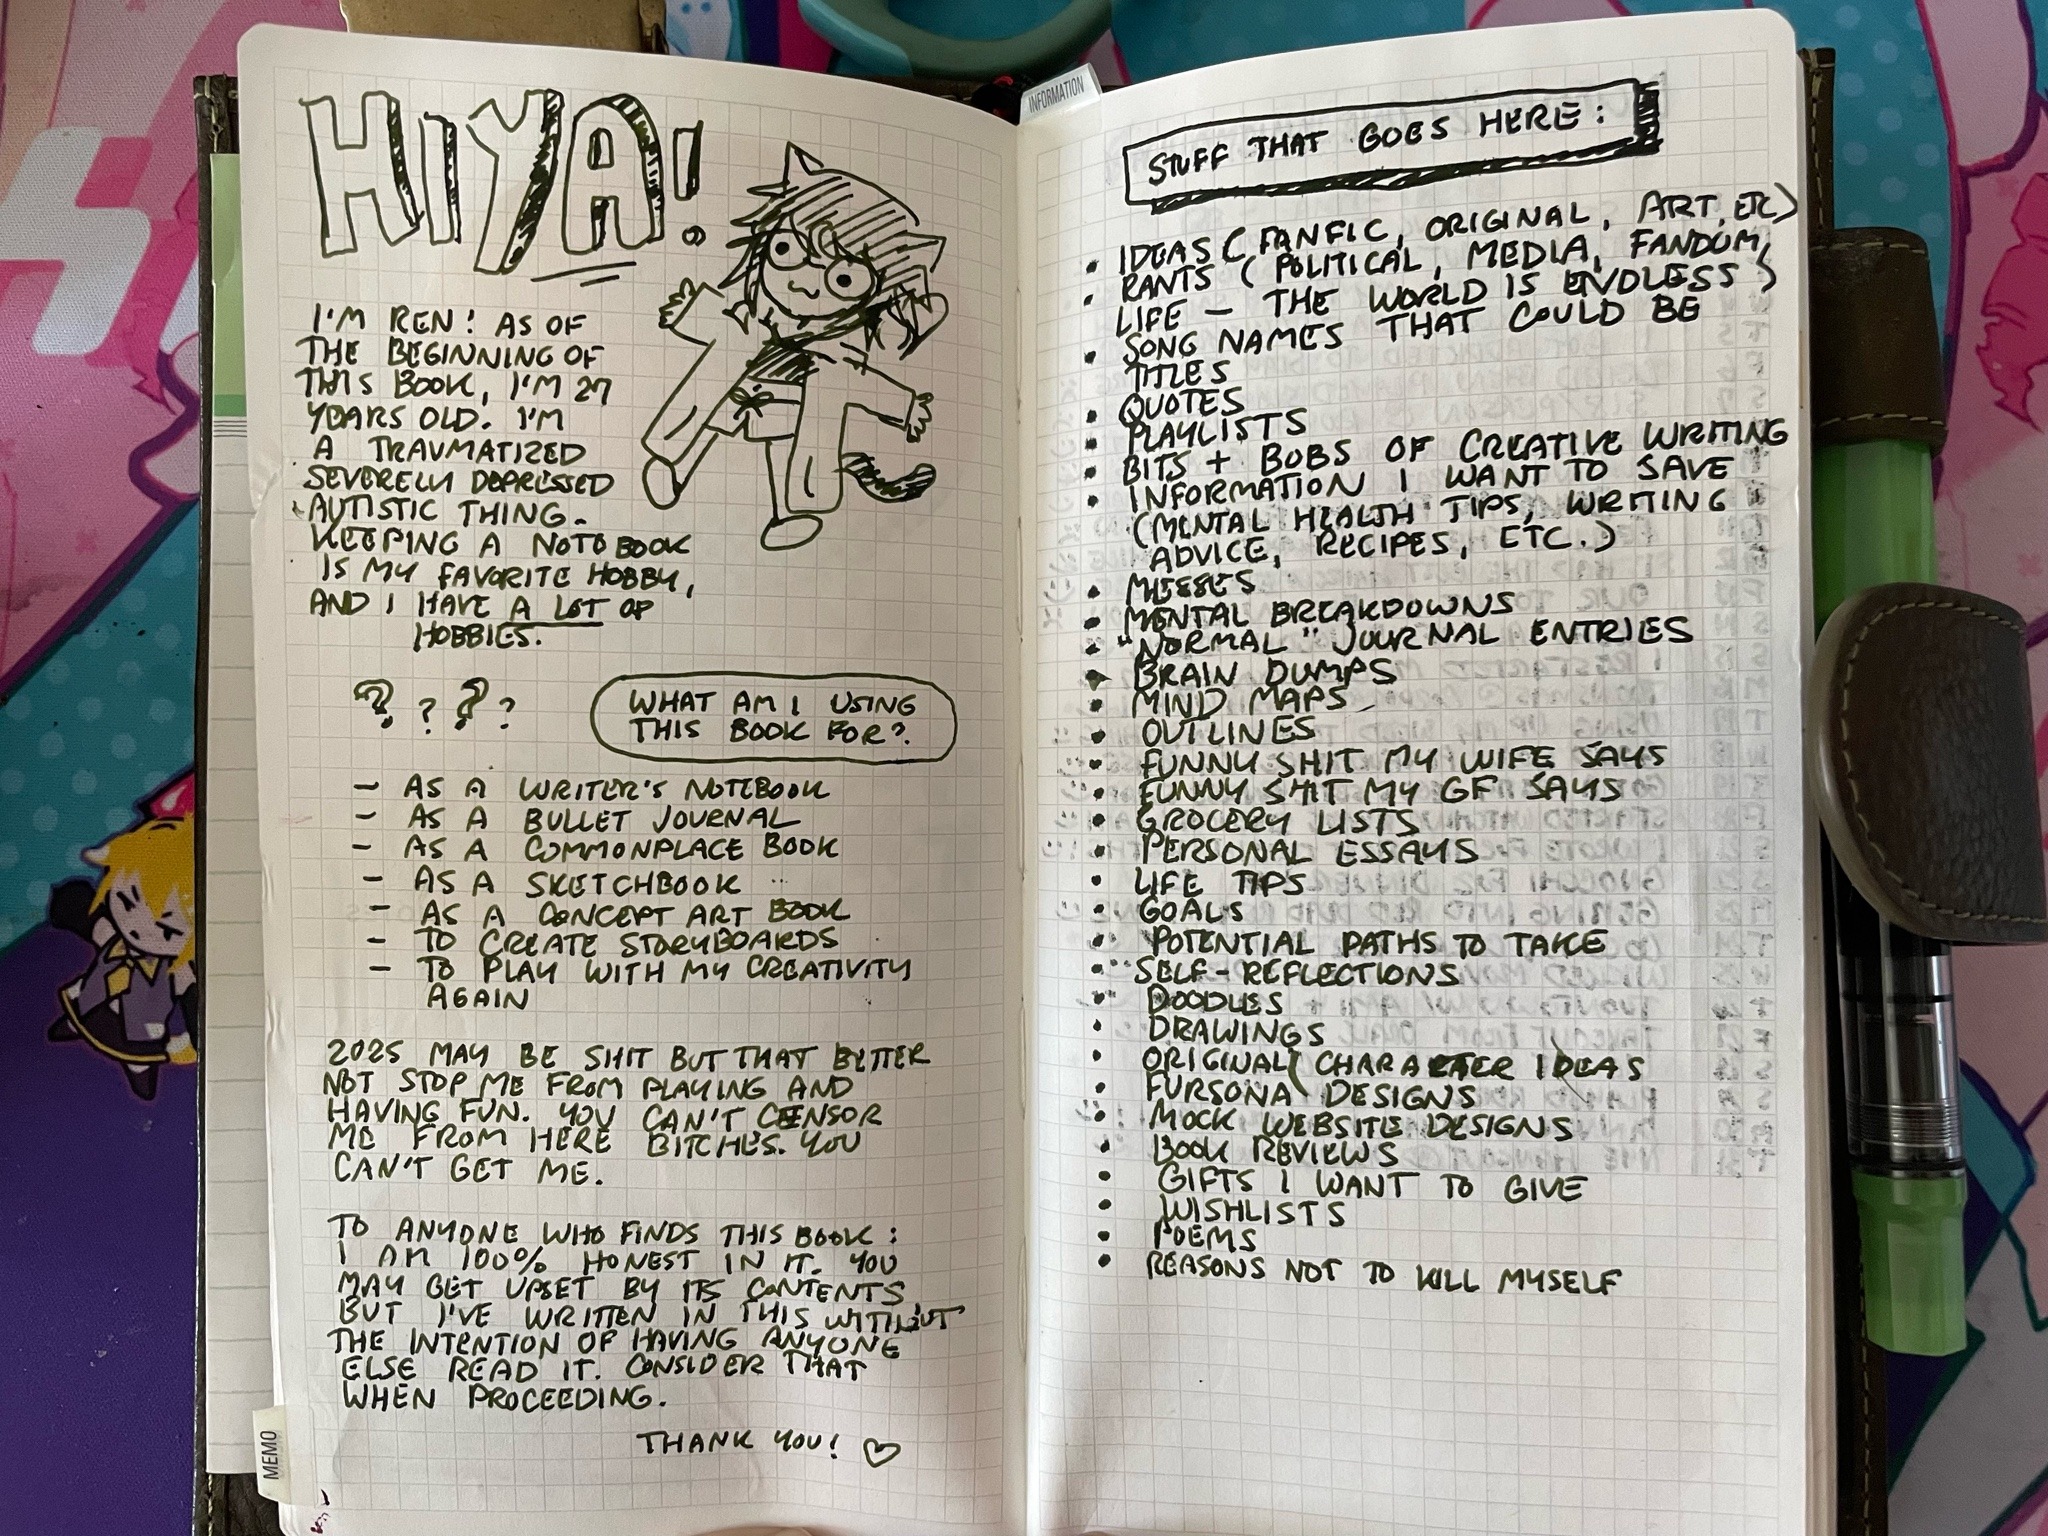 HIYA!
I'M REN! AS OF
THE BEGINNING OF
THIS BOOK, I'M 27
YEARS OLD. I'M
A TRAUMATIZED
SEVERELY DEPRESSED
AUTISTIC THING.
KEEPING A NOTEBOOK
IS MY FAVORITE HOBBY,
AND I HAVE A LOT OF
HOBBIES.
? ? ? ?
WHAT AM I USING
THIS BOOK FOR?
- AS A WRITER'S NOTEBOOK
- AS A BULLET JOURNAL
- AS A COMMONPLACE BOOK
- AS A SKETCHBOOK
- AS A CONCEPT ART BOOK
- TO CREATE STORYBOARDS
- TO PLAY WITH MY CREATIVITY
AGAIN
2025 MAY BE SHIT BUT THAT BETTER
NOT STOP ME FROM PLAYING AND
HAVING FUN. YOU CAN'T CENSOR
ME FROM HERE BITCHES. YOU
CAN'T GET ME.
TO ANYONE WHO FINDS THIS BOOK:
I AM 100% HONEST IN IT. YOU
MAY GET UPSET BY ITS CONTENTS
BUT I'VE WRITTEN IN THIS WITHOUT
THE INTENTION OF HAVING ANYONE
ELSE READ IT. CONSIDER THAT
WHEN PROCEEDING.
THANK YOU! ♡
MEMO
INFORMATION
STUFF THAT GOES HERE:
• IDEAS (FANFIC, ORIGINAL, ART, ETC)
• RANTS (POLITICAL, MEDIA, FANDOM,
LIFE - THE WORLD IS ENDLESS)
• SONG NAMES THAT COULD BE
TITLES
• QUOTES
• PLAYLISTS
• BITS + BOBS OF CREATIVE WRITING
• INFORMATION I WANT TO SAVE
(MENTAL HEALTH TIPS, WRITING
ADVICE, RECIPES, ETC.)
• MESSES
• MENTAL BREAKDOWNS
• "NORMAL" JOURNAL ENTRIES
• BRAIN DUMPS
• MIND MAPS
• OUTLINES
• FUNNY SHIT MY WIFE SAYS
• FUNNY SHIT MY GF SAYS
• GROCERY LISTS
• PERSONAL ESSAYS
• LIFE TIPS
• GOALS
• POTENTIAL PATHS TO TAKE
• SELF-REFLECTIONS
• DOODLES
• DRAWINGS
• ORIGINAL CHARACTER IDEAS
• FURSONA DESIGNS
• MOCK WEBSITE DESIGNS
• BOOK REVIEWS
• GIFTS I WANT TO GIVE
• WISHLISTS
• POEMS
• REASONS NOT TO KILL MYSELF